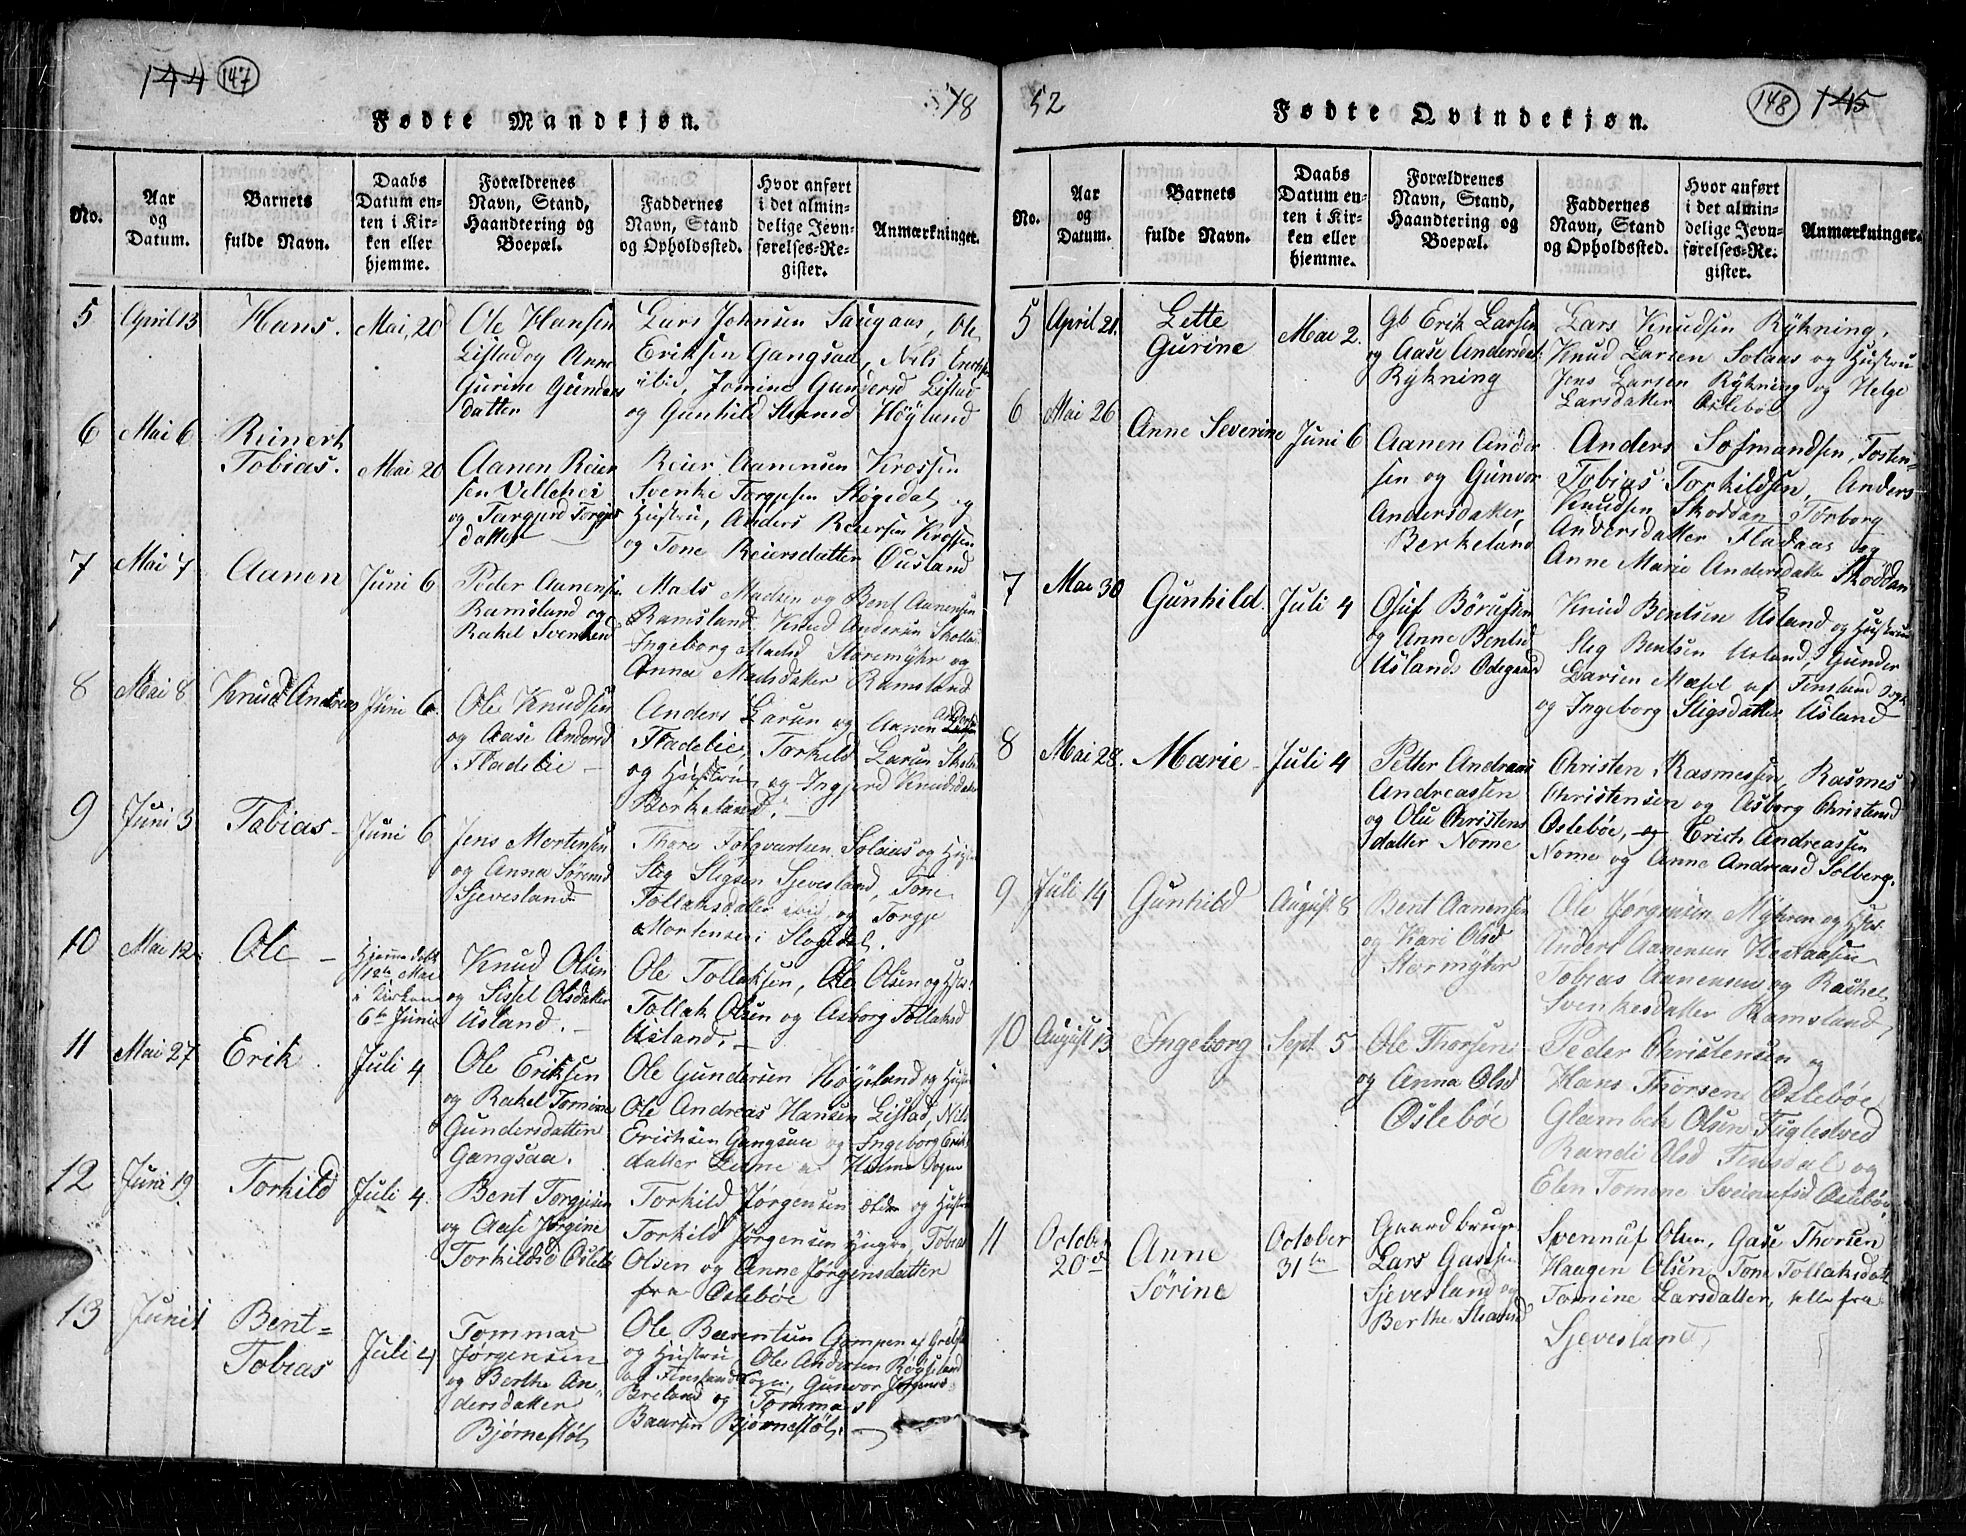 144 147
78
Fødte Mandkjøn.
No.
Aar
og
Datum.
Barnets
fulde Navn.
Daabs
Datum en-
ten i Kir-
ken eller
hjemme.
Forældrenes
Navn, Stand,
Haandtering og
Boepæl.
Faddernes
Navn, Stand
og Opholdssted.
Hvor anført
i det almin-
delige Jevn-
førelses-Re-
gister.
Anmærkninger.
5 April 13 Hans. Mai, 20
Ole Hansen
Listad og Anne
Gurine Gunders
datter
Lars Johnsen Saugaas, Ole
Eriksen Gangsaa, Nils
ibid, Jomine Gundersd Listad
og Gunhild Høyland
6 Mai 6 Reinert
Tobias. Mai 20
Aanen Reier
sen
og Targjerd Torgjus
datter
Reier Aanensen Krossen
Svenke Torgjusen Støgedal og
Hustru, Anders Reiersen Krossen
og Tone Reiersdatter Ousland
7 Mai 7 Aanen Juni 6
Peder Aanensen
Ramsland og
Rakel Svenkesd
Mads Madsen og Bent Aanensen
Ramsland, Knud Andersen
Ingeborg Madsd Storemyhr og
Anna Madsdatter Ramsland
8 Mai 8 Knud Andreas Juni 6
Ole Knudsen
og Aase Andersd
Fladelie
Anders Larsen og Aanen
Fladelie, Torkild Larsen
og Hustru og Ingjerd Knudsdatter
Berkeland.
9 Juni 3 Tobias Juni 6
Jens Mortensen
og Anna Sørensd
Sjevesland
Thore Folqvartsen Solaas og
Stig Stigsen Sjevesland, Tone
Tollaksdatter ibid og Torgje
Mortensen Støgedal.
10 Mai 12 Ole
Hjemmedøbt
12te Mai
i Kirken
6te Juni
Knud Olsen
og Sissel Olsdatter
Usland.
Ole Tollaksen, Ole Olsen og
Tollak Olsen og Asborg Tollaksd
Usland.
11 Mai 27 Erik Juli 4
Ole Eriksen
og Rakel Tomine
Gundersdatter
Gangsaa.
Ole Gundersen Høyeland og
Ole Andreas Hansen Listad, Nils
Erichsen Gangsaa og Ingeborg Erik
datter af Holme Sogn
12 Juni 19 Torkild Juli 4.
Bent Torgjusen
og Aase Jørgine
Torkildsd Oslebø
Torkild Jørgensen ældre og Hustru
Torkild Jørgensen yngre, Tobias
Olsen og Anne Jørgensdatter
fra Oslebøe
13 Juni 1 Bent=
Tobias Juli 4
Tommas
Jørgensen
og Berthe An-
dersdatter
Bjørnestøl
Ole Bærentsen Gompen af
og Hustru, Ole Andersen Røyseland
af Finsland Sogn, Gunvor Jørgensd
Breland og Tommas
Baarsen Bjørnestøl.
52
148 145
Fødte Qvindekjøn.
No.
Aar
og
Datum.
Barnets
fulde Navn.
Daabs
Datum en-
ten i Kir-
ken eller
hjemme.
Forældrenes
Navn, Stand,
Haandtering og
Boepæl.
Faddernes
Navn, Stand
og Opholdssted.
Hvor anført
i det almin-
delige Jevn-
førelses-Re-
gister.
Anmærkninger.
5 April 21. Lette
Gurine Mai 2.
Gb Erik Larsen
og Aase Andersdat
Rykning
Lars Knudsen Rykning,
Knud Larsen Solaas og Hustru
Jens Larsen Rykning og Helge
Larsdatter Oslebøe
6 Mai 26 Anne Severine Juni 6
Aanen Ander
sen og Gunvor
Andersdatter,
Berkeland
Anders Tosten-
Tobias Torkildsen, Anders
Knudsen Skoddan Torborg
Andersdatter Fladaas og
Anne Marie Andersdatter Skoddan
7 Mai 30 Gunhild. Juli 4
Osuf Børufsen
og Anne Bentsd
Uslands Ødegaard
Knud Bentsen Usland og Hustru
Stig Bentsen Usland, Gunder
Larsen Mæsel af Finsland Sogn
og Ingeborg Stigsdatter Usland
8 Mai 28. Marie Juli 4
Petter Andreas
Andreassen
og Olu Christens
datter Nome
Christen Rasmussen, Rasmus
Christensen og Asborg Christensd
Oslebøe, og Erich Andreassen
Nome og Anne Andreasd Solberg.
9 Juli 14 Gunhild August 8
Bent Aanensen
og Kari Olsd
Stormyhr
Ole Jørgensen Myhren og
Anders Aanensen
Tobias Aanensen og Rachel
Svenkesdatter Ramsland
10 August 13 Ingeborg Sept. 5
Ole Thorsen
og Anna Olsd
Oslebøe
Peder Christensen og
Hans Thorsen Oslebøe
Glambek Olsen Fuglestved
Randi Olsd Finsdal og
Elen Tomine Oslebøe
11 October
20de Anne
Sørine October
31te
Gaardbruger
Lars Gasesen
Sjevesland og
Berthe
Svennuf Olsen, Gase Thorsen
Haagen Olsen, Tone Tollaksdat
Tomine Larsdatter, alle fra
Sjevesland